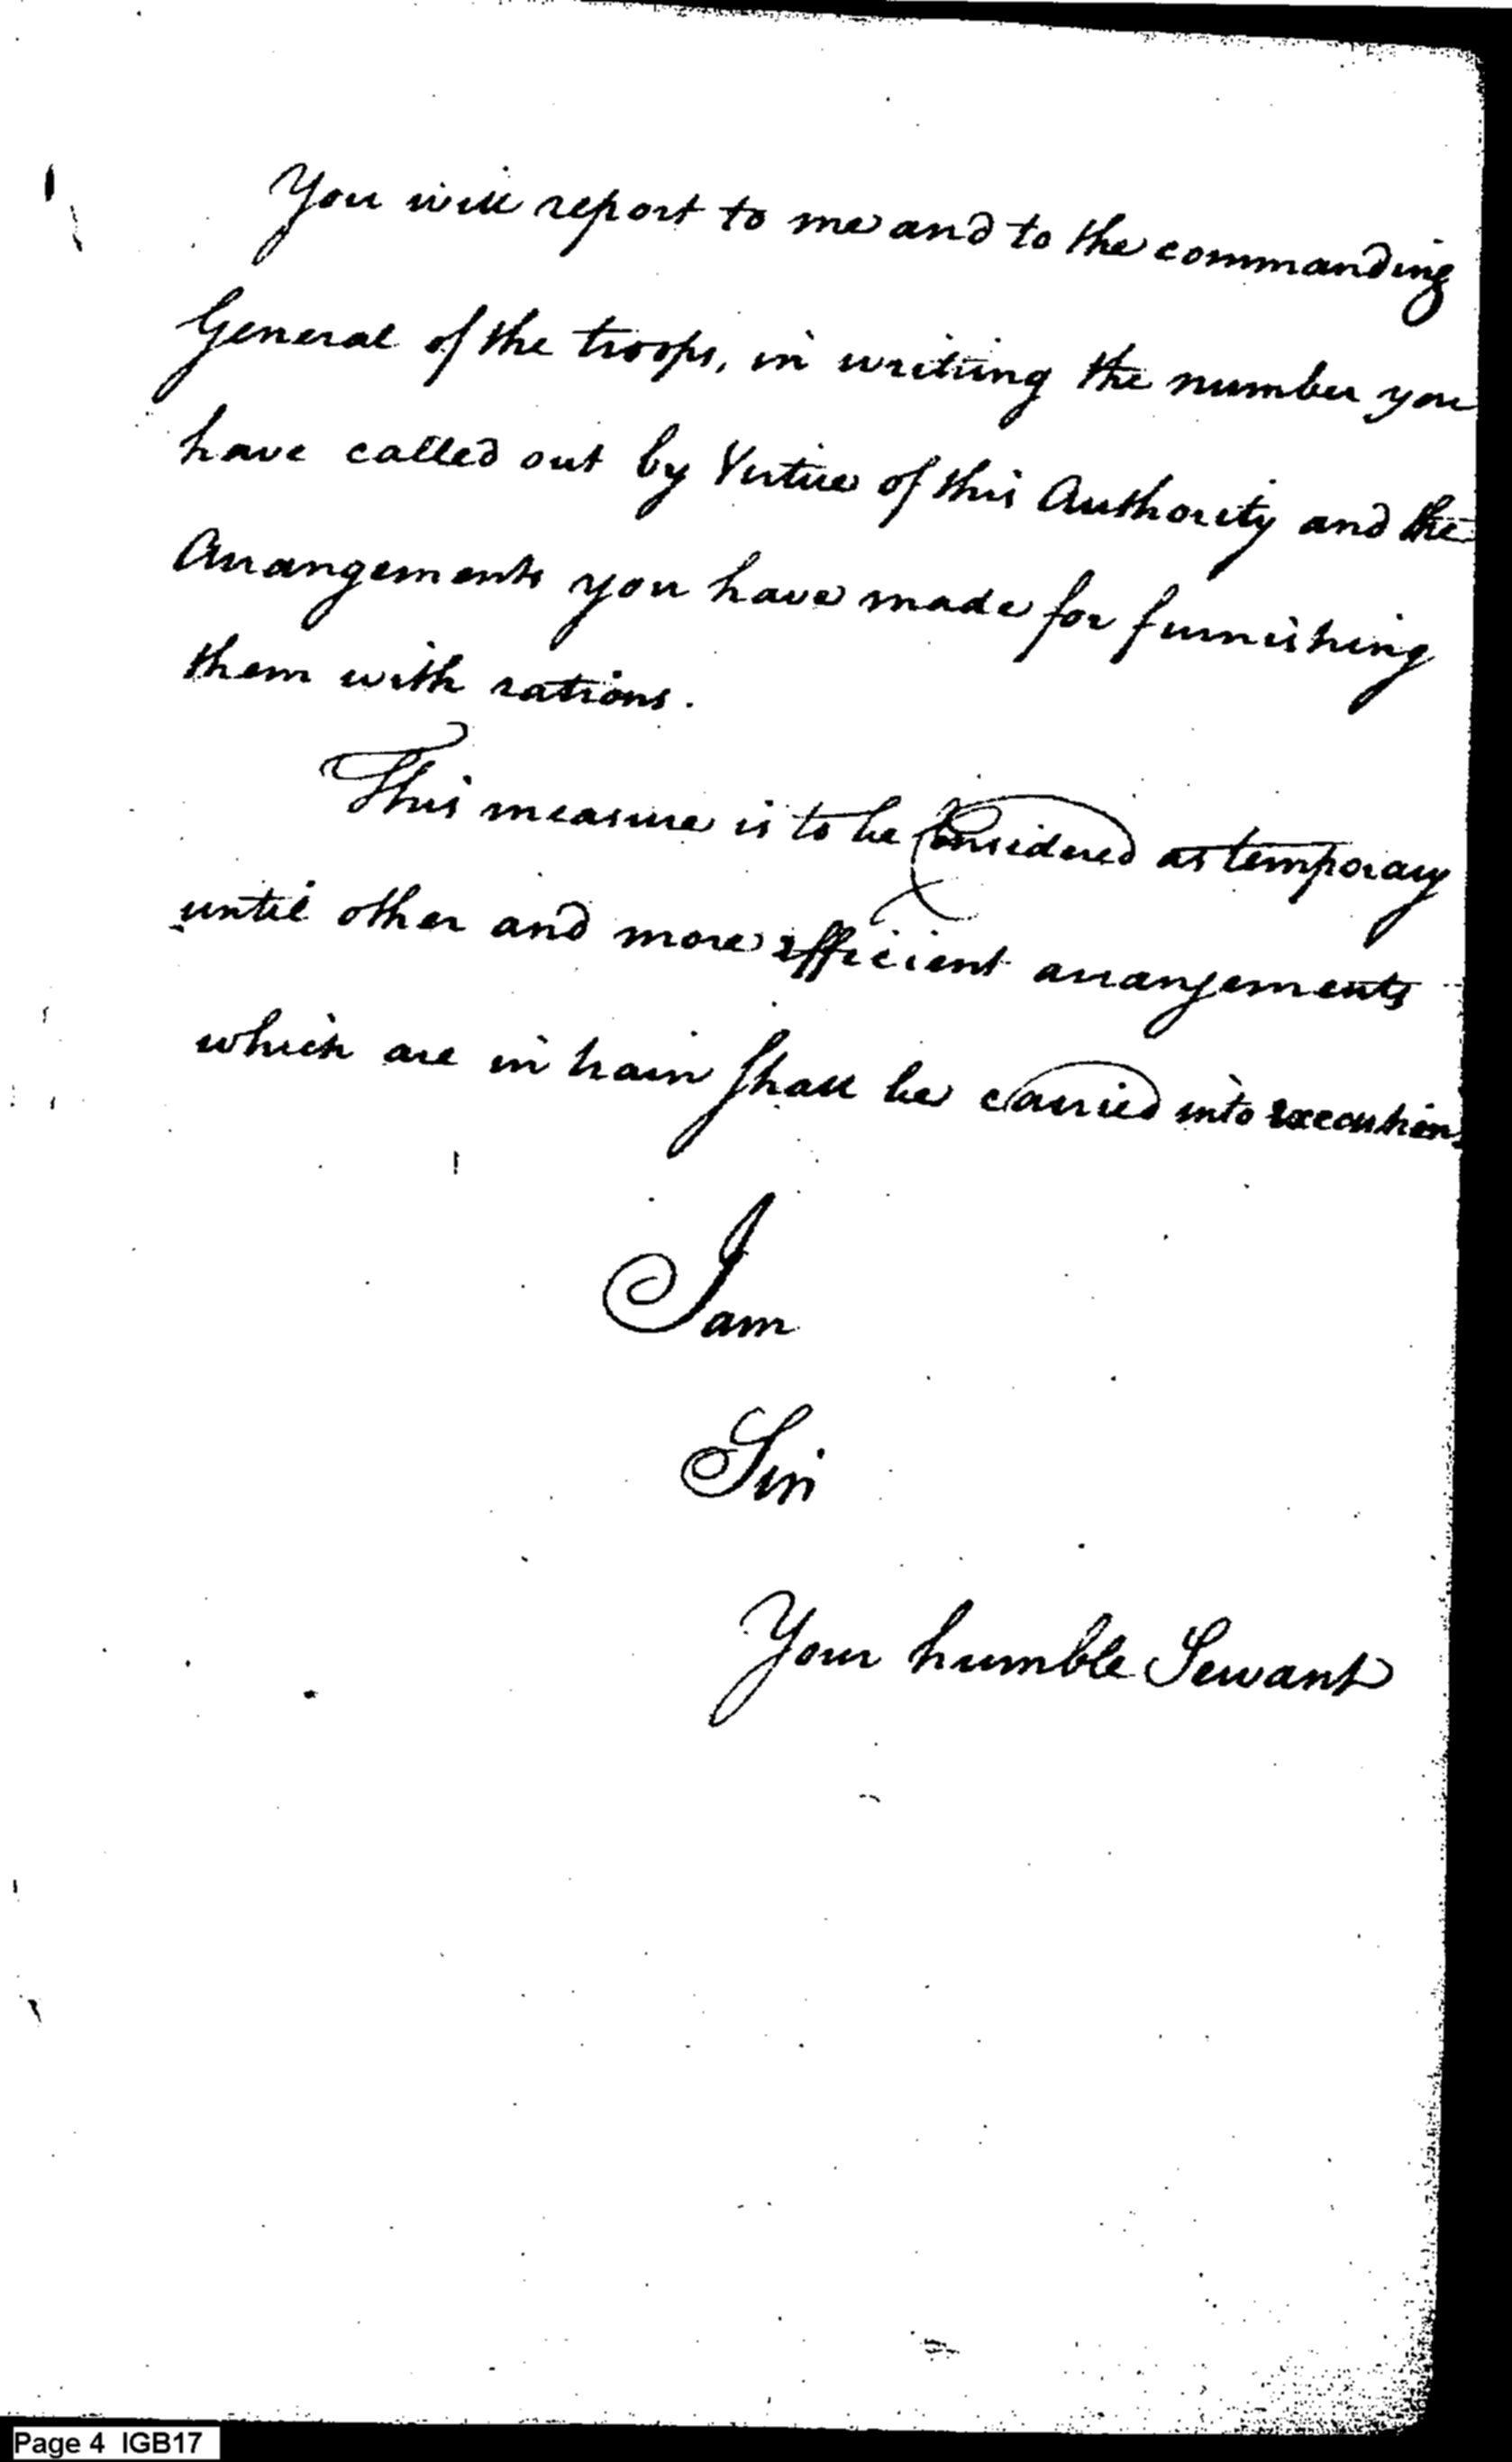 You will report to me and to the commanding
General of the troops, in writing the number you
have called out by Virtue of this Authority and the
Arrangements you have made for furnishing
them with rations.
This measure is to be Considered as temporary
until other and more efficient arrangements
which are in train shall be carried into execution.
I am
Sir
Your humble Servant
Page 4 IGB17